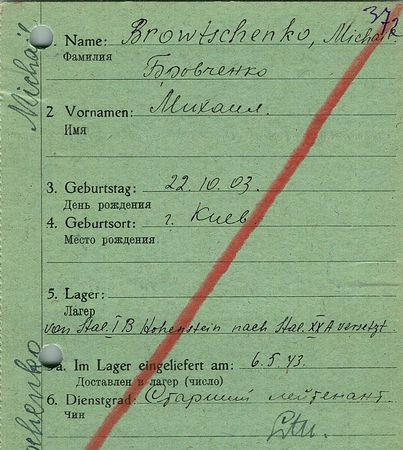 37
Name: Browtschenko, Michail
Фамилия
Бровченко
2 Vornamen: Михаил.
Имя
3. Geburtstag: 22.10.03.
День рождения
4. Geburtsort: г. Киев
Место рождения
5. Lager:
Лагер
von Stal. I B Hohenstein nach Stal. XXA versetzt
5a. Im Lager eingeliefert am: 6.5.43.
Доставлен в лагер (число)
6. Dienstgrad: Старший лейтенант.
Чин
Michail